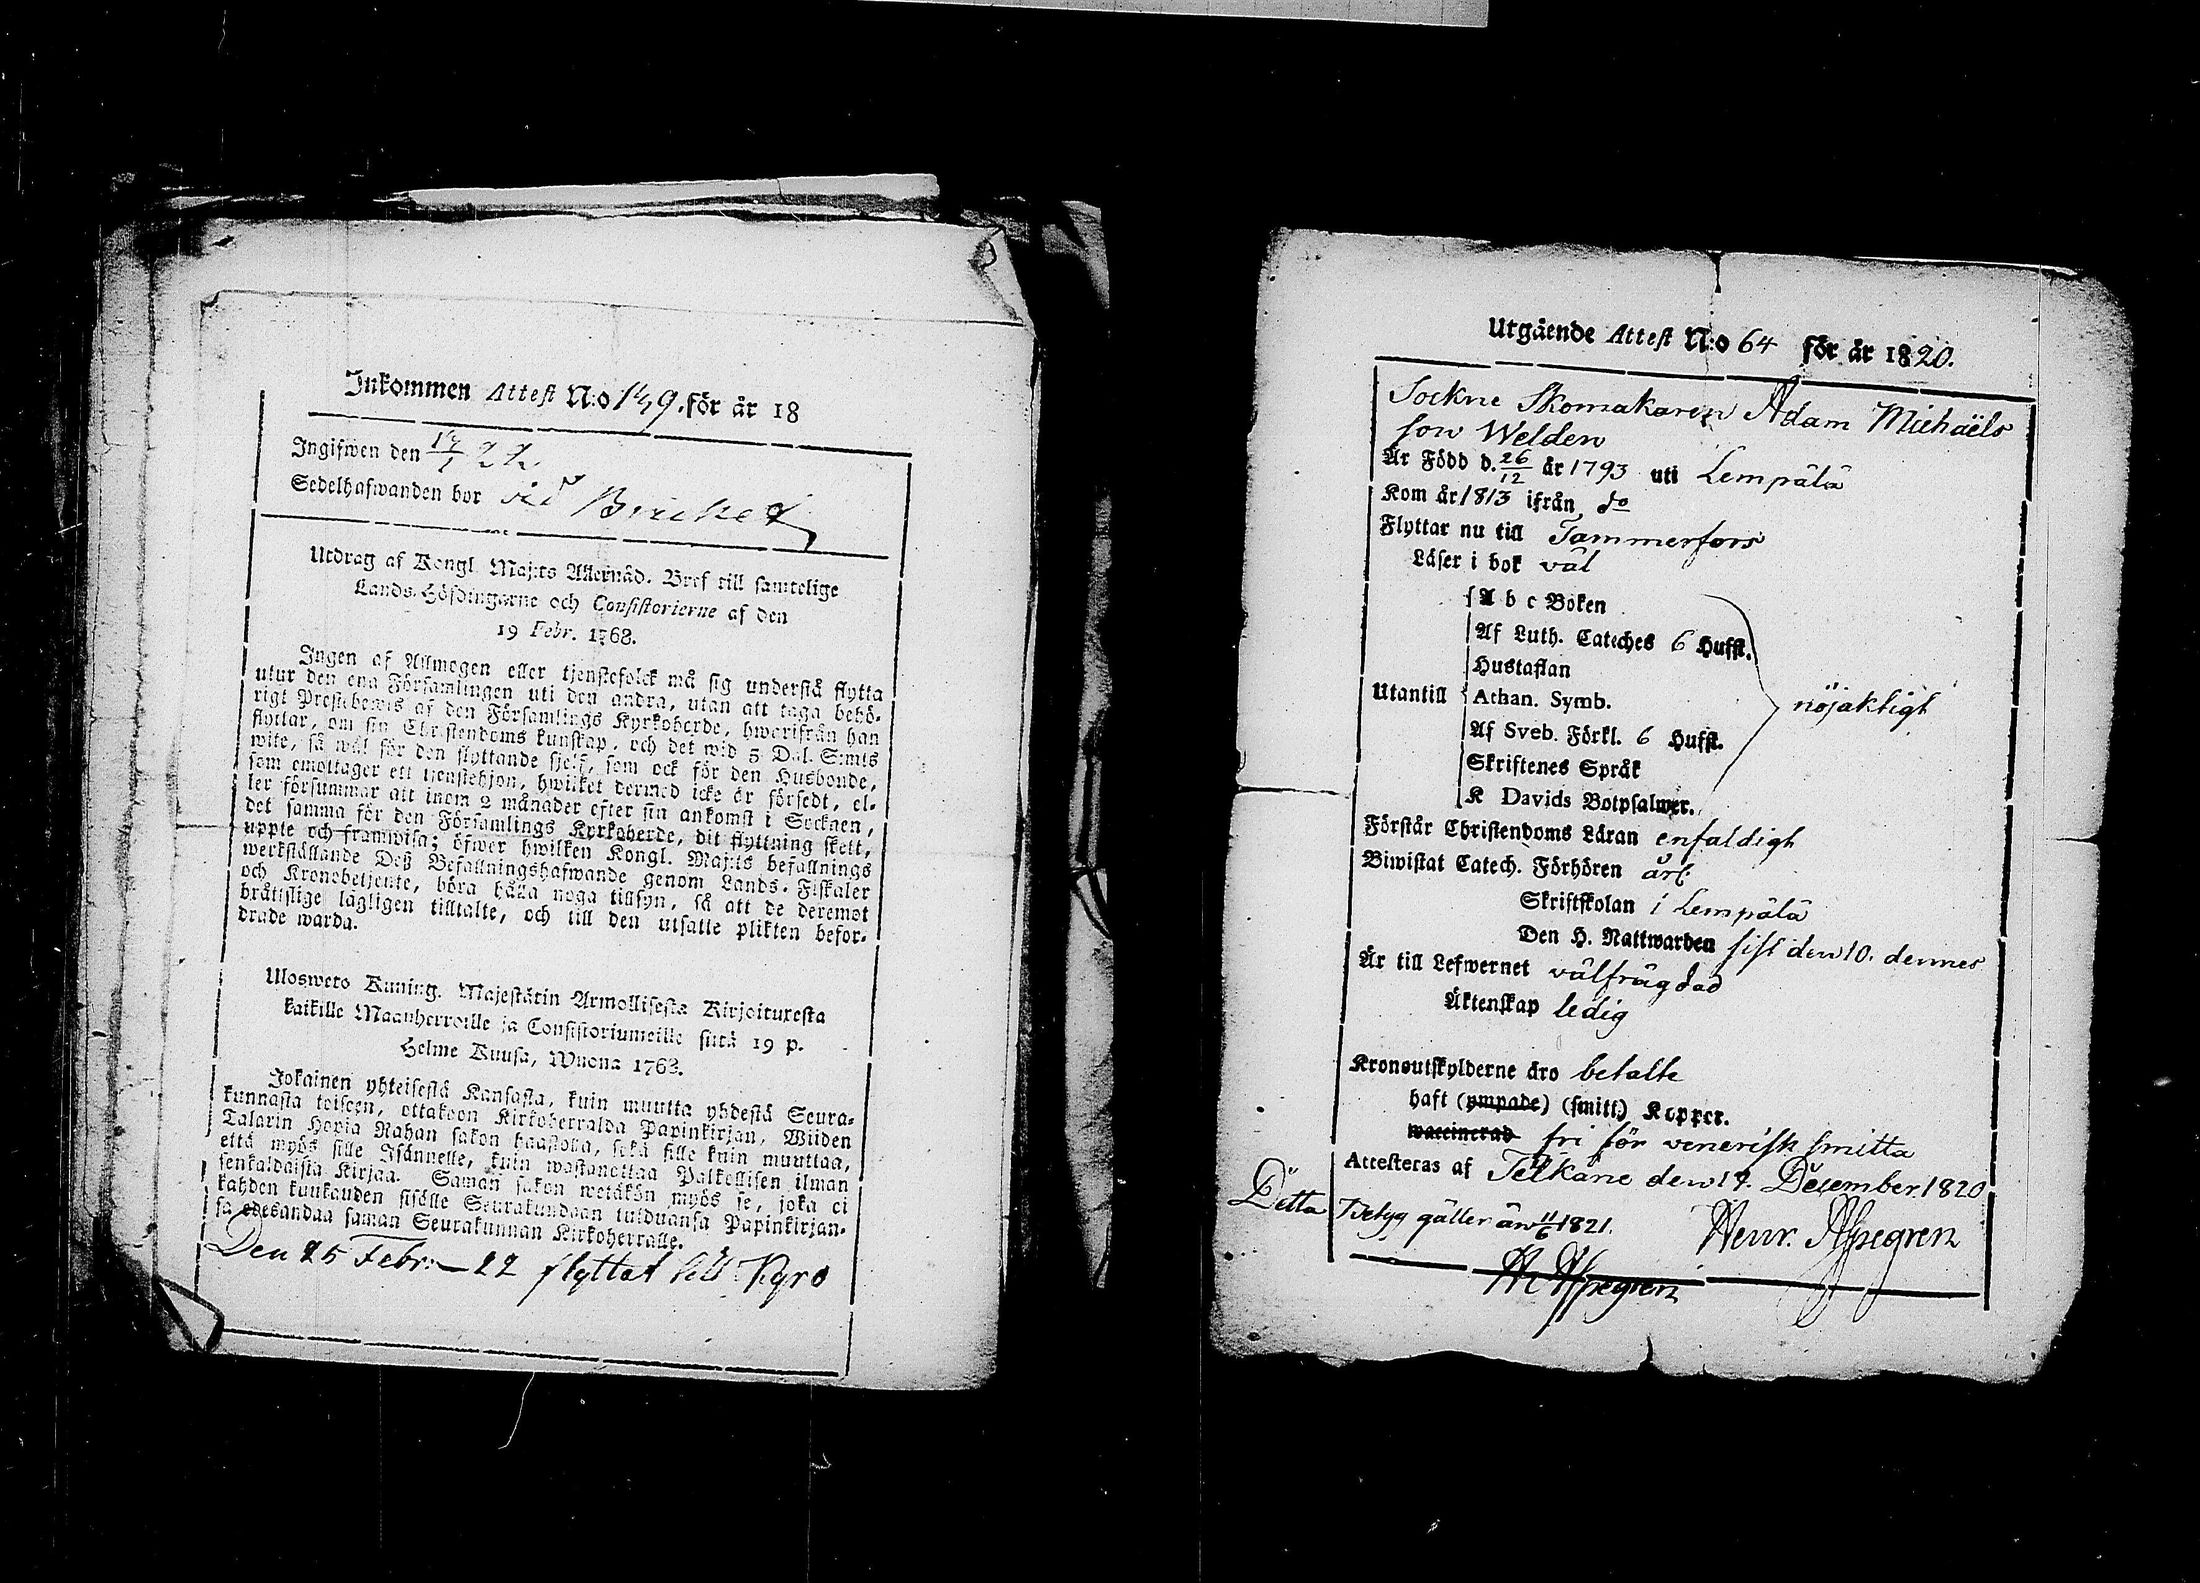 Inkommen Attest N:o 149. för år 18
Ingifwen den 17/1 22.
Sedelhafwanden bor vid
Utdrag af Kongl. Maj:ts Allernåd. Bref till samtelige
Lands-Höfdingarne och Consistorierne af den
19 Febr. 1768.
Ingen af Allmogen eller tjenstefolck må sig understå flytta
utur den ena Församlingen uti den andra, utan att taga behö-
rigt Prestebewis af den Församlings Kyrkoherde, hwarifrån han
flyttar, om sin Christendoms kunskap, och det wid 5 Dal. S:mts
wite, så wäl för den flyttande sjelf, som ock för den Husbonde,
som emottager ett tjenstehjon, hwilket dermed icke är försedt, el-
ler försummar att inom 2 månader efter sin ankomst i Socknen,
det samma för den Församlings Kyrkoherde, dit flyttning skett,
uppte och framwisa; öfwer hwilken Kongl. Maj:ts befallnings
werkställande Deß Befallningshafwande genom Lands-Fiskaler
och Kronobetjente, böra hålla noga tillsyn, så att de deremot
bråttslige lagligen tilltalte, och till den utsatte plikten befor-
drade warda.
Ulosweto Kuning. Majestätin Armollisesta Kirjoituxesta
kaikille Maanherroille ja Consistoriumeille siitä 19 p.
Helme Kuusa, Wuona 1768.
Jokainen yhteisestä Kansasta, kuin muutta yhdestä Seura-
kunnasta toiseen, ottakoon Kirkoherralda Papinkirjan, Wiiden
Talarin Hopia Rahan sakon haastolla, sekä sille kuin muuttaa,
että myös sille Isännelle, kuin wastanottaa Palkollisen ilman
senkaldaista Kirjaa. Saman sakon wetäkön myös se, joka ei
kahden kuukauden sisälle Seurakundaan tulduansa Papinkirjan-
sa edesandaa saman Seurakunnan Kirkoherralle.
Den 25 Febr:– 22 flyttat till Kyro
Utgående Attest N:o 64 för år 1820.
Sockne Skomakaren Adam Michaëls
son Welden
Är Född d. 26/12 år 1793 uti Lempälä
Kom år 1813 ifrån do
Flyttar nu till Tammerfors
Läser i bok väl
A b c Boken
Af Luth. Cateches 6 Hufst.
Hustaflan
Utantill Athan. Symb. nöjaktigt
Af Sveb. Förkl. 6 Hufst.
Skriftenes Språk
K Davids Botpsalmer.
Förstår Christendoms Läran enfaldigt
Biwistat Catech. Förhören årl:
Skriftskolan i Lempälä
Den H. Nattwarden sist den 10. dennes
Är till Lefwernet välfrägdad
Äktenskap ledig
Kronoutskylderne äro betalte
haft (ympade) (smitt) Koppor.
waccinerad fri för venerisk smitta
Attesteras af den 19. December 1820
Detta Betyg gäller än 11/6 1821. Henr. Aspegren
H Aspegren